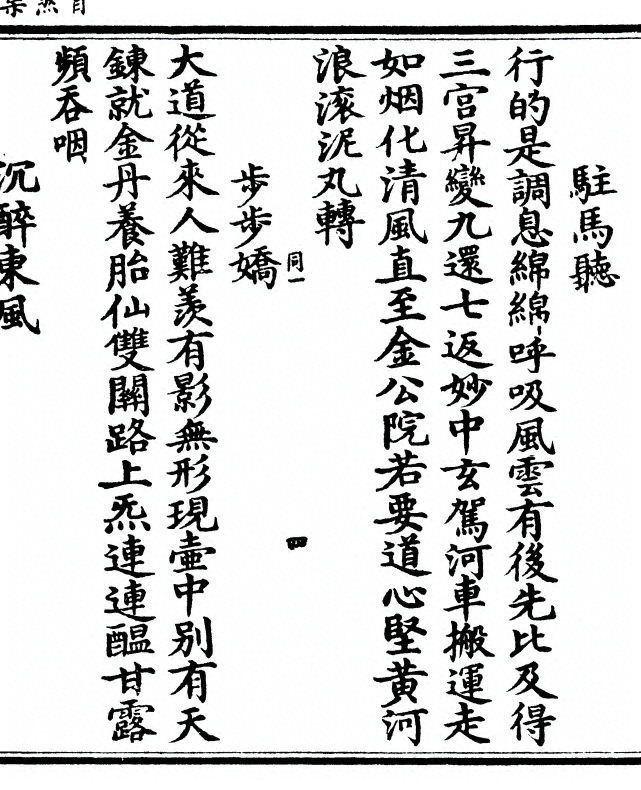 駐馬聽
行的是調息綿綿呼吸風雲有後先比及得
三宮昇變九還七返妙中玄駕河車搬運走
如烟化清風直至金公院若要道心堅黄河
浪滚泥丸轉
步步嬌同一
四
大道從來人難羡有影無形現壷中别有天
鍊就金丹養胎仙雙關路上炁連連醖甘露
頻吞咽
沉醉東風